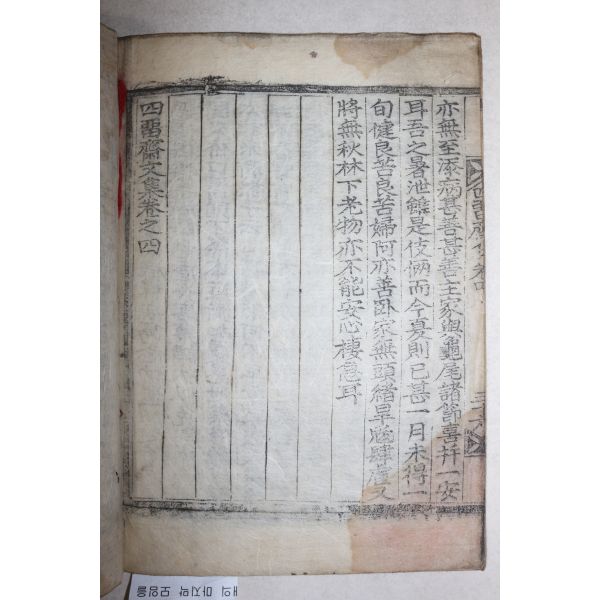 亦無至添病甚善甚善主家與龜尾諸節喜幷一安
耳吾之暑泄雖是伎倆而今夏則已甚一月未得一
旬健良苦良苦婦阿亦善卧家無頭緖旱凶肆虐又
將無秋林下老物亦不能安心棲息耳
四留齋文集卷之四
卷四
三十六